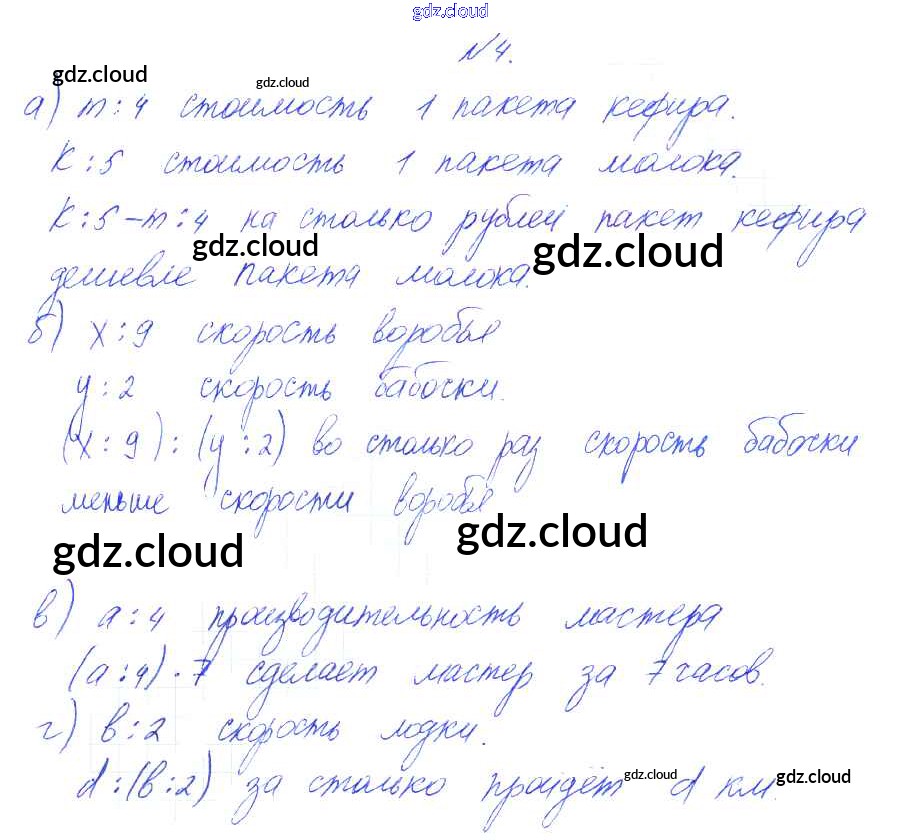 gdz.cloud
№4.
gdz.cloud gdz.cloud
а) m:4 стоимость 1 пакета кефира.
К:5 стоимость 1 пакета молока.
К:5-m:4 на столько рублей пакет кефира
gdz.cloud gdz.cloud
дешевле пакета молока.
б) х:9 скорость воробья
у:2 скорость бабочки.
(х:9):(у:2) во столько раз скорость бабочки
меньше скорости воробья
gdz.cloud gdz.cloud
в) а:4 производительность мастера
(а:4)·7 сделает мастер за 7 часов.
г) в:2 скорость лодки.
d:(в:2) за столько пройдёт d км.
gdz.cloud gdz.cloud